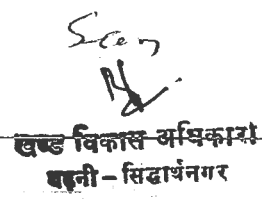 Seen
खण्ड विकास अधिकारी
बढ़नी - सिद्धार्थनगर